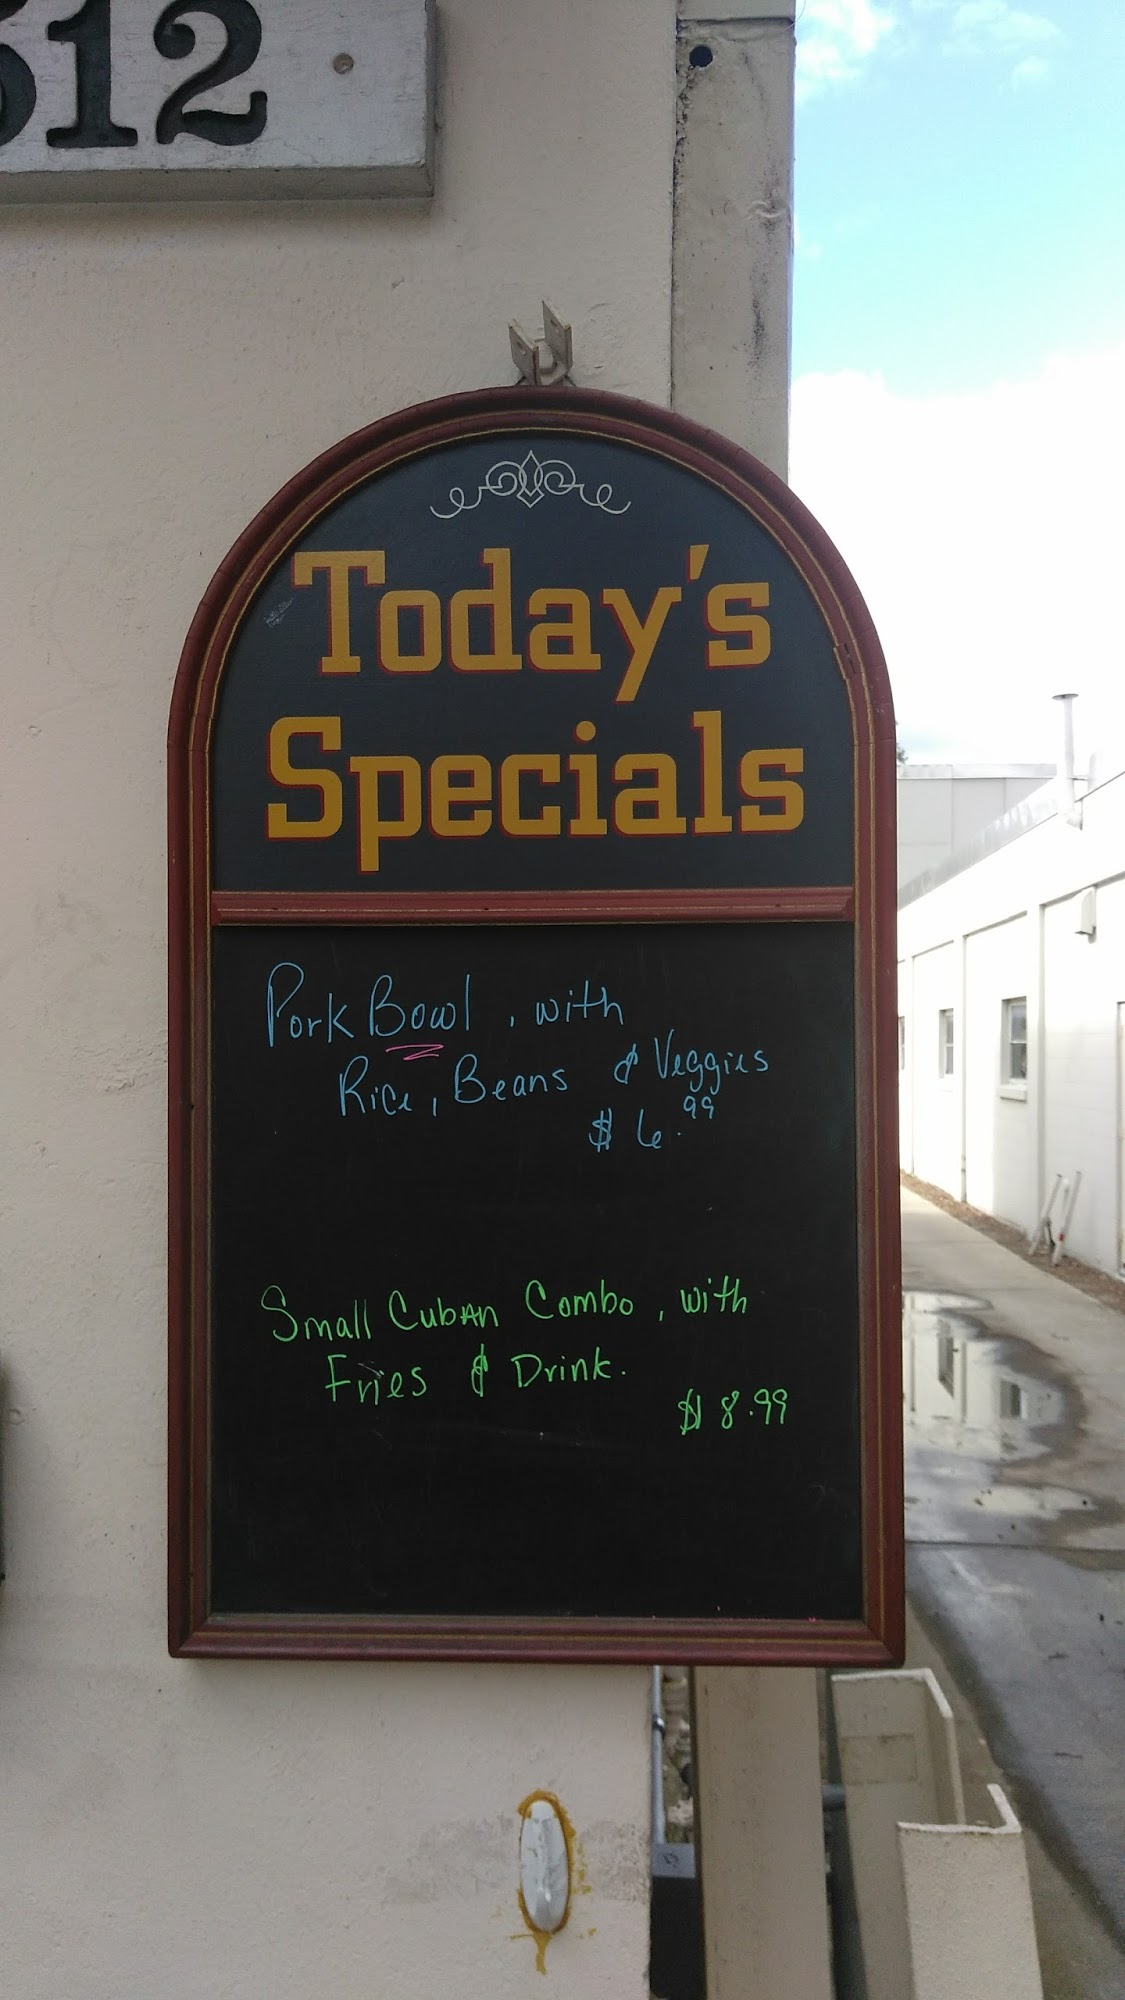 312
Today's
Specials
Pork Bowl, with
Rice, Beans & Veggies
$6.99
Small Cuban Combo, with
Fries & Drink.
$8.99